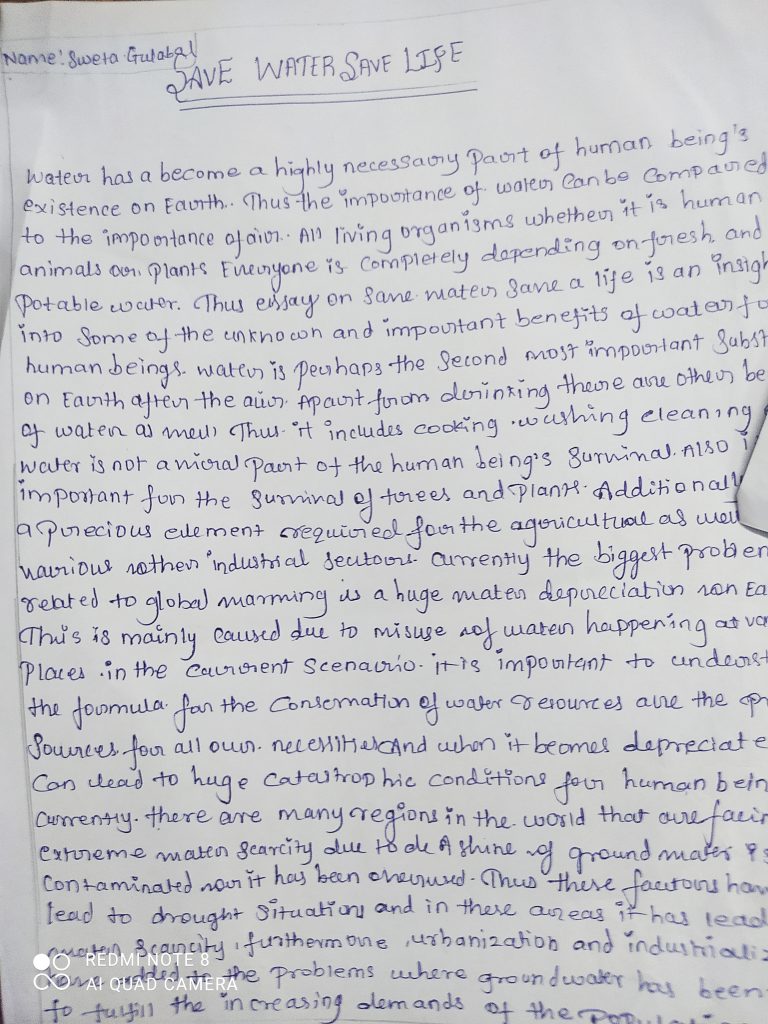 Name: Sweta Gulabal
SAVE WATER SAVE LIFE
Water has a become a highly necessary part of human being's
existence on Earth. Thus the importance of water can be compared
to the importance of air. All living organisms whether it is human
animals or plants Everyone is completely depending on fresh and
potable water. Thus essay on save water save a life is an insigh
into some of the unknown and important benefits of water fo
human beings. water is perhaps the second most important Subst
on Earth after the air. Apart from drinking there are other be
of water as well Thus it includes cooking washing cleaning
water is not a viral part of the human being's survival. Also i
important for the survival of trees and plants. Additionally
a precious element required for the agricultural as well
various other industrial sectors. Currently the biggest problem
related to global warming is a huge water depreciation on Ea
This is mainly caused due to misuse of water happening at va
Places in the current scenario. it is important to underst
the formula for the Conservation of water resources are the pr
Sources for all our necessities And when it becomes depreciate
can lead to huge catastrophic conditions for human bein
Currently there are many regions in the world that are facin
extreme water scarcity due to ground water is
contaminated or it has been overused. Thus these factors hav
lead to drought situations and in these areas it has lead
water scarcity, furthermore, urbanization and industrializ
have added to the problems where groundwater has been
to fulfill the increasing demands of the population
REDMI NOTE 8
AI QUAD CAMERA